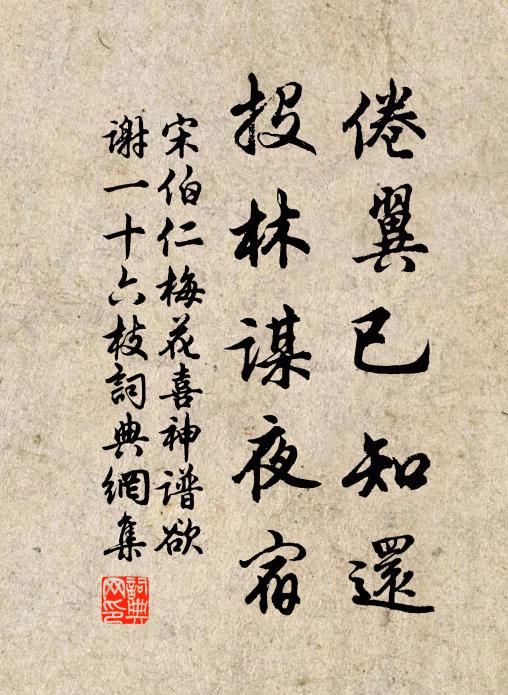 倦翼已知還
投林謀夜宿
宋伯仁梅花喜神谱欲
谢一十六枝詞典網集
詞典网印